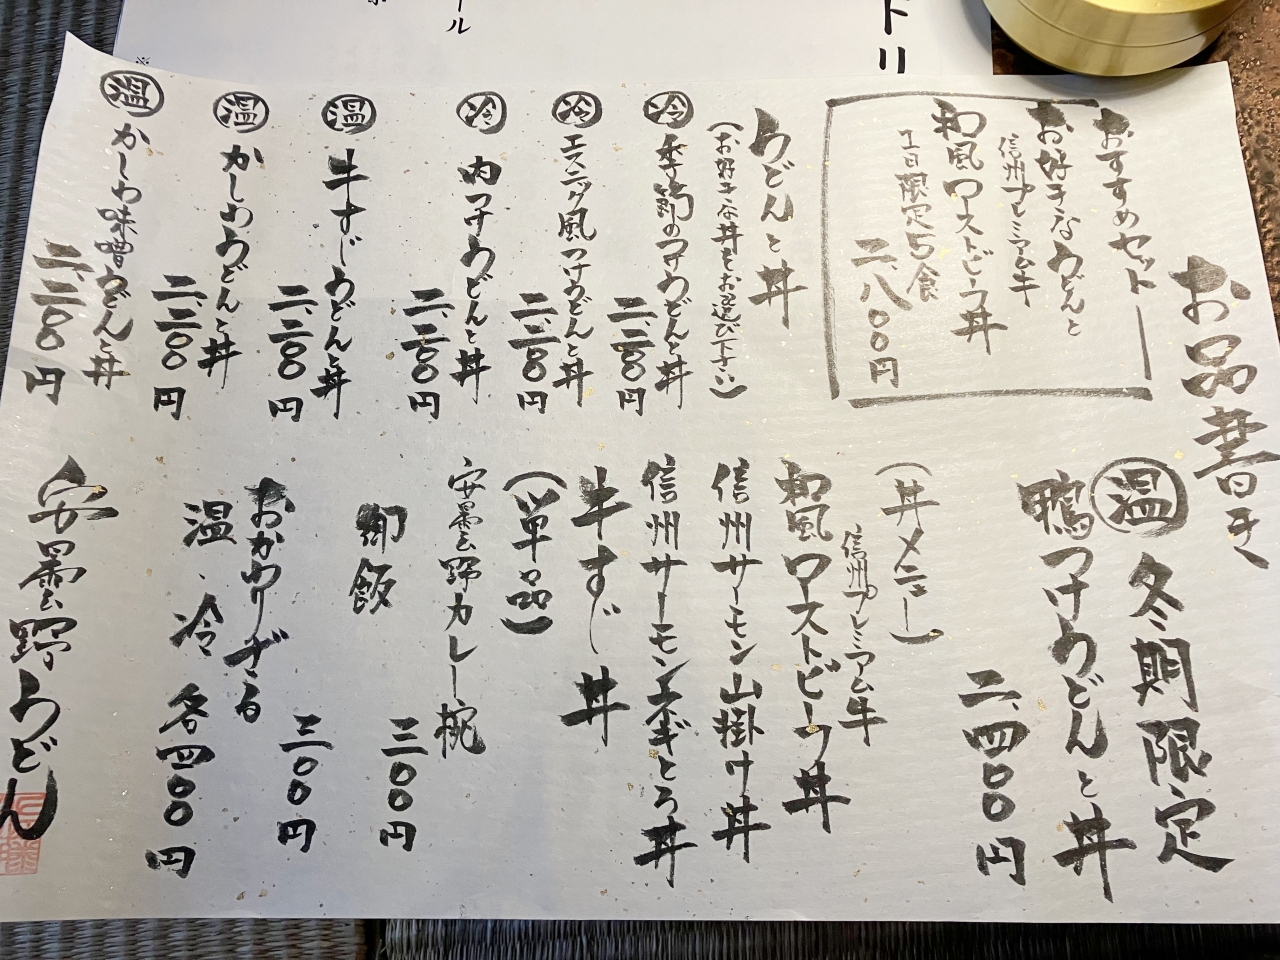 トリ
ール
※
お品書き
おすすめセット
お好きなうどんと
信州プレミアム牛
和風ローストビーフ丼
1日限定5食
二、八〇〇円
うどんと丼
(お好きな丼をお選び下さい)
冷 季節のつけうどんと丼
二、二〇〇円
冷 エスニック風つけうどんと丼
二、二〇〇円
冷 肉つけうどんと丼
二、二〇〇円
温 牛すじうどんと丼
二、二〇〇円
温 かしわうどんと丼
二、二〇〇円
温 かしわ味噌うどんと丼
二、二〇〇円
温 冬期限定
鴨つけうどんと丼
二、四〇〇円
(丼メニュー)
信州プレミアム牛
和風ローストビーフ丼
信州サーモン山掛け丼
信州サーモンネギとろ丼
牛すじ丼
(単品)
安曇野カレー椀
三〇〇円
御飯
三〇〇円
おかわりざる
温、冷 各四〇〇円
安曇野うどん